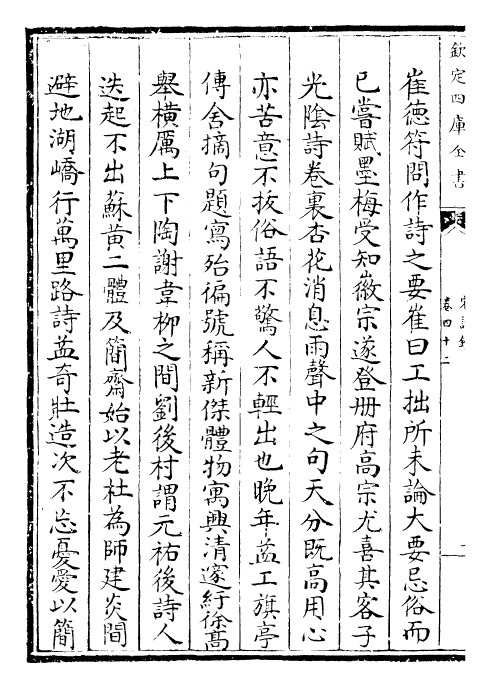 欽定四庫全書
宋詩鈔
卷四十二
崔德符問作詩之要崔曰工拙所未論大要忌俗而
已嘗賦墨梅受知徽宗遂登册府高宗尤喜其客子
光陰詩卷裏杏花消息雨聲中之句天分既高用心
亦苦意不拔俗語不驚人不輕出也晚年益工旗亭
傳舍摘句題寫殆徧號稱新傑體物寓興清邃紆徐髙
舉橫厲上下陶謝韋柳之間劉後村謂元祐後詩人
迭起不出蘇黄二體及簡齋始以老杜為師建炎間
避地湖嶠行萬里路詩益奇壯造次不忘憂愛以簡